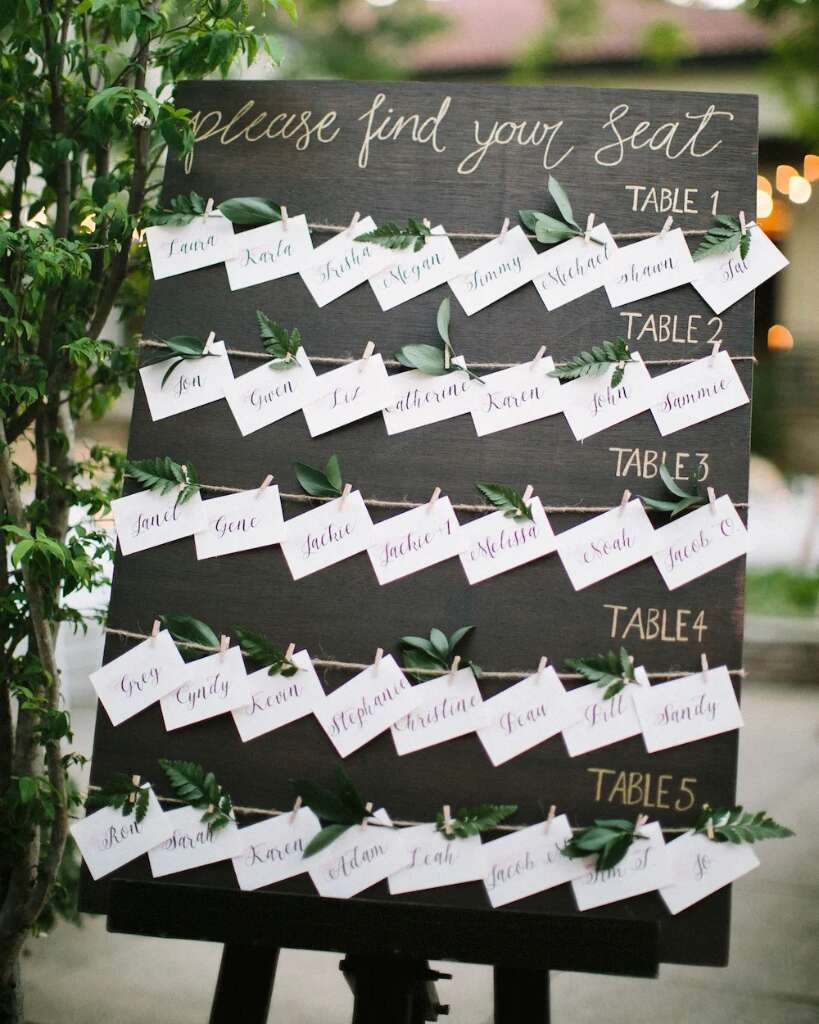 please find your seat
TABLE 1
Laura Karla Trisha Megan Timmy Michael Shawn Tai
TABLE 2
Jon Gwen Liz Catherine Karen John Sammie
TABLE 3
Janet Gene Jackie Jackie+1 Melissa Noah Jacob O.
TABLE 4
Greg Cyndy Kevin Stephanie Christine Beau Bill Sandy
TABLE 5.
Ron Sarah Karen Adam Leah Jacob Jo